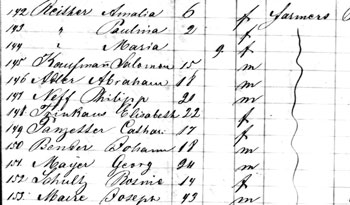 142 Reither Amalia 6 f farmers
143 " Paulina 2 f
144 " Maria 9 f
145 Kaufman Salomon 15 m
146 Adler Abraham 18 m
147 Neff Philipp 21 m
148 Trinkaus Elisabeth 22 f
149 Cathar 17 f
150 Bender Johann 18 m
151 Mayer Georg 24 m
152 Schultz Rosine 14 f
153 Maire Joseph 43 m